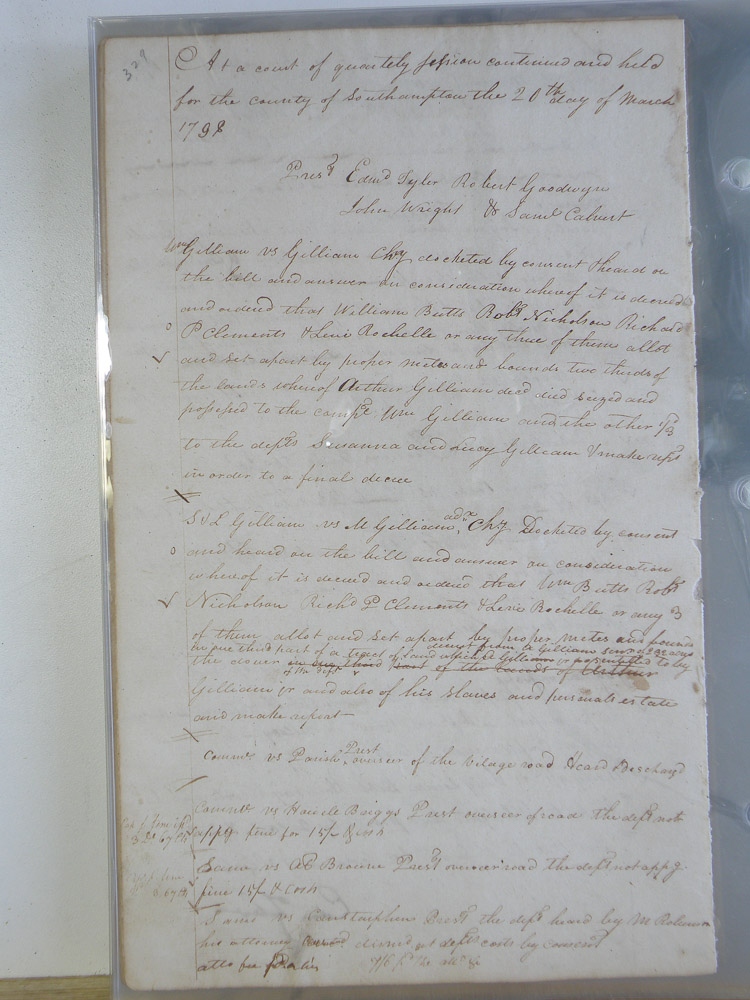 At a court of quartely session continued and held
for the county of Southampton the 20th day of March
1798
Prest Edmd Tyler Robert Goodwyn
John Wright & Saml Calvert
Wm Gilliam vs Gilliam Chy docketed by consent & heard on
the bill and answer on consideration whereof it is decreed
and orderd that William Butts Robt Nicholson Richard
P Clements & Levi Rochelle or any three of them allot
and set apart by proper metes and bounds two thirds of
the lands whereof Arthur Gilliam decd died seized and
possessed to the complt Wm Gilliam and the other 1/3
to the defts Susanna and Lucy Gilliam & make rept
in order to a final decree
S & L Gilliam vs M Gilliam adx Chy Docketed by consent
and heard on the bill and answer on consideration
whereof it is decreed and ordered that Wm Butts Robt
Nicholson Richd P Clements & Levi Rochelle or any 3
of them allot and set apart by proper metes and bounds
one third part of a tract of land which from A Gilliam
the dower of Arthur
of the deft
Gilliam jr and also of his slaves and personal estate
and make report
Commt vs Parish Prest overseer of the vilage road Heard & Dischargd
Commt vs Howell Briggs Prest overseer of road the deft not
appg fine for 15/ & Costs
Same vs AB Browne Prest overseer road the deft not appg
fine 15/ & Costs
Same vs Prest the deft heard by M
his attorney defts costs by consent
atto fee